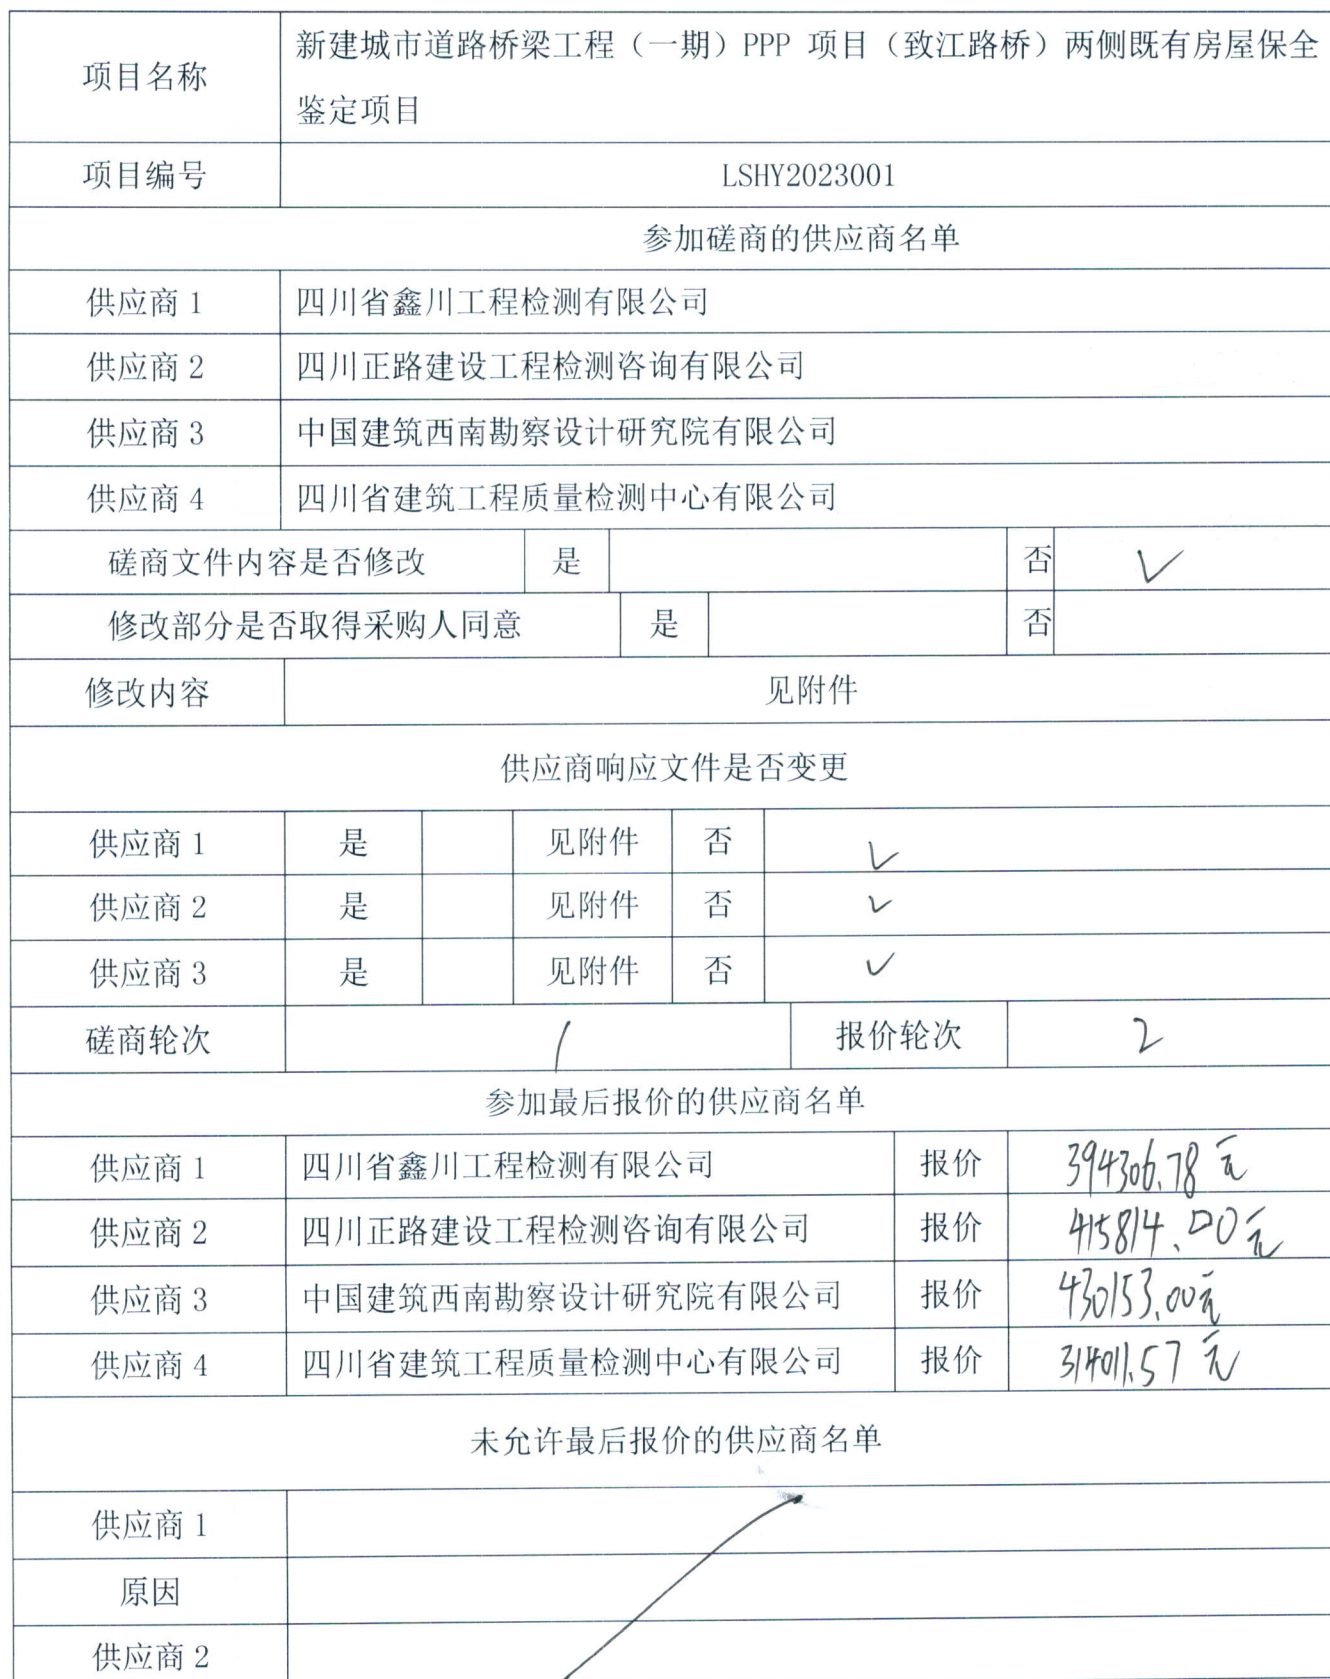 项目名称 新建城市道路桥梁工程（一期）PPP 项目（致江路桥）两侧既有房屋保全
鉴定项目
项目编号 LSHY2023001
参加磋商的供应商名单
供应商 1 四川省鑫川工程检测有限公司
供应商 2 四川正路建设工程检测咨询有限公司
供应商 3 中国建筑西南勘察设计研究院有限公司
供应商 4 四川省建筑工程质量检测中心有限公司
磋商文件内容是否修改 是 否 ✓
修改部分是否取得采购人同意 是 否
修改内容 见附件
供应商响应文件是否变更
供应商 1 是 见附件 否 ✓
供应商 2 是 见附件 否 ✓
供应商 3 是 见附件 否 ✓
磋商轮次 1 报价轮次 2
参加最后报价的供应商名单
供应商 1 四川省鑫川工程检测有限公司 报价 394306.78元
供应商 2 四川正路建设工程检测咨询有限公司 报价 415814.00元
供应商 3 中国建筑西南勘察设计研究院有限公司 报价 430153.00元
供应商 4 四川省建筑工程质量检测中心有限公司 报价 314011.57元
未允许最后报价的供应商名单
供应商 1
原因
供应商 2